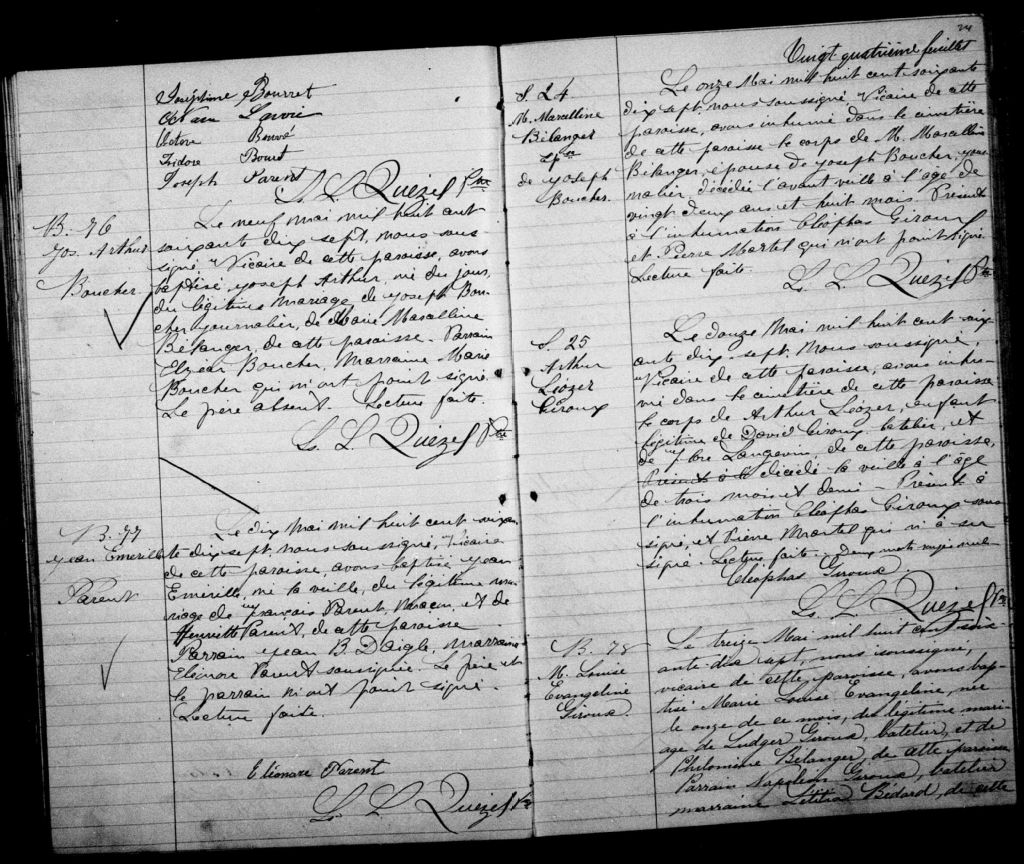 Joséphine Bourret
Isidore Bouret
Joseph Parent
L. L. Quézel Ptre
B. 76
Jos. Arthur
Boucher
Le neuf Mai mil huit cent
soixante dix sept, nous sous
signé Vicaire de cette paroisse, avons
baptisé Joseph Arthur, né du jour,
du légitime mariage de Joseph Bou-
cher journalier, de Marie Marcelline
Bélanger, de cette paroisse. Parrain
Elzear Boucher, Marraine Marie
Boucher qui n'ont point signé.
Le père absent. Lecture faite.
L. L. Quézel Ptre
B. 77
Jean Emerille
Parent
Le dix Mai mil huit cent soixan-
te dix sept nous soussigné, Vicaire
de cette paroisse, avons baptisé Jean
Emerille, né la veille, du légitime ma-
riage de François Parent, Maçon, et de
Henriette Parent, de cette paroisse
Parrain Jean B. Daigle, marraine
Eléonore Parent soussignée. Le père et
le parrain n'ont point signé.
Lecture faite.
Eléonore Parent
L. L. Quézel Ptre
24
Vingt-quatrième feuillet
S. 24
M. Marcelline
Bélanger
de Joseph
Boucher.
Le onze Mai mil huit cent soixante
dix sept, nous soussigné Vicaire de cette
paroisse, avons inhumé dans le cimetière
de cette paroisse le corps de M. Marcelline
Bélanger, épouse de Joseph Boucher, jour-
nalier, décédée l'avant veille à l'age de
vingt deux ans et huit mois. Présents
à l'inhumation Cléophas Giroux
et Pierre Martel qui n'ont point signé
Lecture faite.
L. L. Quézel Ptre
S. 25
Arthur
Léozer
Giroux
Le douze Mai mil huit cent soix-
ante dix-sept, Nous soussigné,
Vicaire de cette paroisse, avons inhu-
mé dans le cimetière de cette paroisse
le corps de Arthur Léozer, enfant
légitime de David Giroux, batelier, et
de Langevin, de cette paroisse,
décédé la veille à l'âge
de trois mois et demi - Présents à
l'inhumation Cléophas Giroux sous-
signé, et Pierre Martel qui n'a su
signé. Lecture faite. Deux mots rayés nuls
Cléophas Giroux
L. L. Quézel Ptre
B. 78
M. Louise
Evangeline
Giroux.
Le treize Mai mil huit cent soix-
ante dix sept, nous soussigné,
vicaire de cette paroisse, avons bap-
tisé Marie Louise Evangeline, née
le onze de ce mois, du légitime mari-
age de Ludger Giroux, batelier, et de
Philomène Bélanger, de cette paroisse
Parrain Napoléon Giroux, batelier
marraine Letitia Bédard, de cette